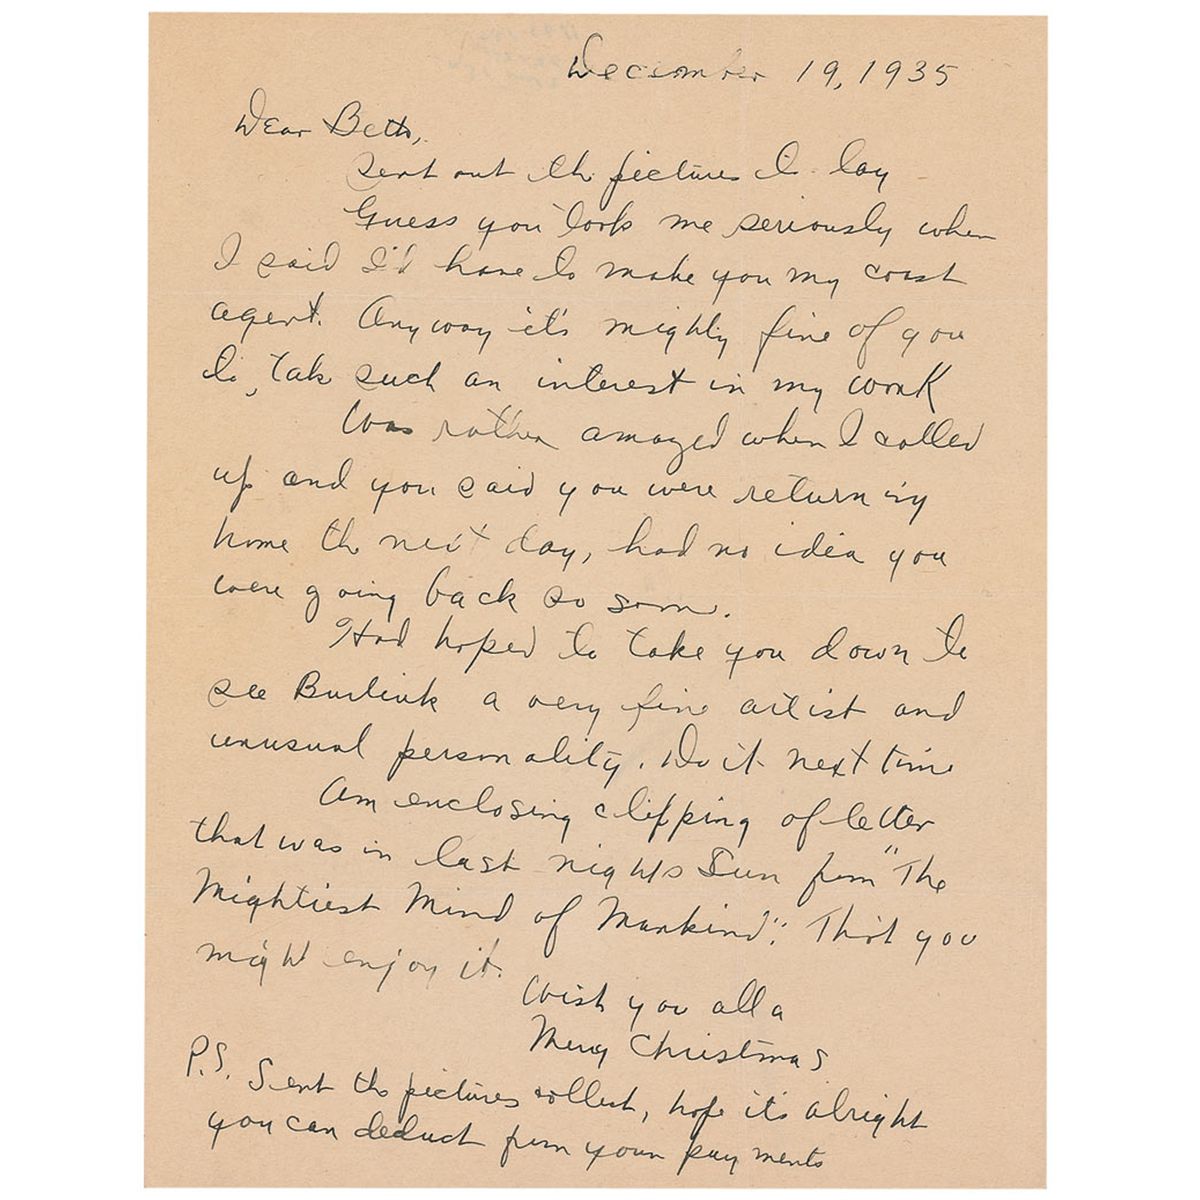 December 19, 1935
Dear Beth,
Sent out the pictures to day
Guess you took me seriously when
I said I'd have to make you my coast
agent. Anyway it's mighty fine of you
to, take such an interest in my work
Was rather amazed when I called
up and you said you were returning
home the next day, had no idea you
were going back so soon.
Had hoped to take you down to
see Burliuk a very fine artist and
unusual personality. Do it next time
Am enclosing clipping of letter
that was in last nights Sun from "The
Mightiest Mind of Mankind". Tho't you
might enjoy it.
Wish you all a
Merry Christmas
P.S. Sent the pictures collect, hope it's alright
you can deduct from your payments